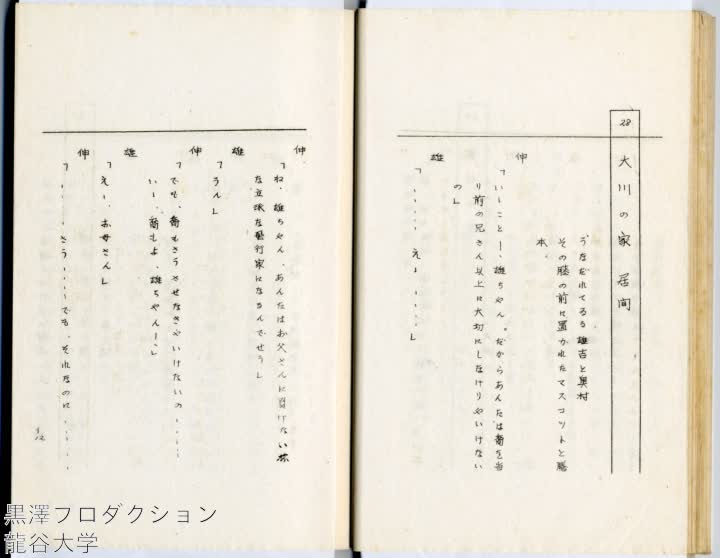 28 大川の家 居間
うなだれてゐる雄吉と奥村
その膝の前に置かれたマスコットと謄
本。
仲
「いゝことー、雄ちやん。だからあんたは番を当
り前の兄さん以上に大切にしなけりやいけない
の」
雄
「‥‥‥え、‥‥‥」
仲
「ね、雄ちやん、あんたはお父さんに負けない
な立派な飛行家になるんでせう」
雄
「うん」
仲
「でも、番もさうさせなきやいけないの‥‥‥
いゝ、番もよ、雄ちやんーー」
雄
「えゝ、お母さん」
仲
「‥‥‥さう‥‥‥でも、それなのに‥‥‥
黒澤プロダクション
龍谷大学